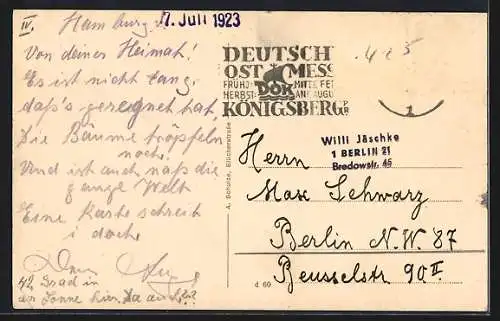 IV. Hamburg
7. Juli 1923
Von deiner Heimat!
Es ist nicht lang,
daß's geregnet hat,
Die Bäume tröpfeln
noch.
Und ist auch naß die
ganze Welt
Eine Karte schreib
i doch.
42 Grad in
der Sonne hier.
DEUTSCH
OST MESS
FRÜHJ. MITTE FE
HERBST. ANF. AUGU
DOK
KÖNIGSBERG PR
Willi Jäschke
1 BERLIN 21
Bredowstr. 45
A. Schulze, Blücherstraße
Herrn
Max Schwarz
Berlin N.W. 87
Beusselstr. 90 II
d 60